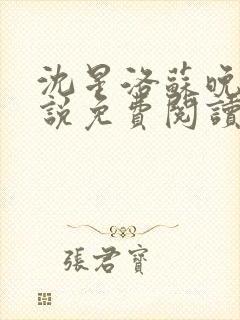 沈星洛蘇晚
說免費閱讀
張君寶